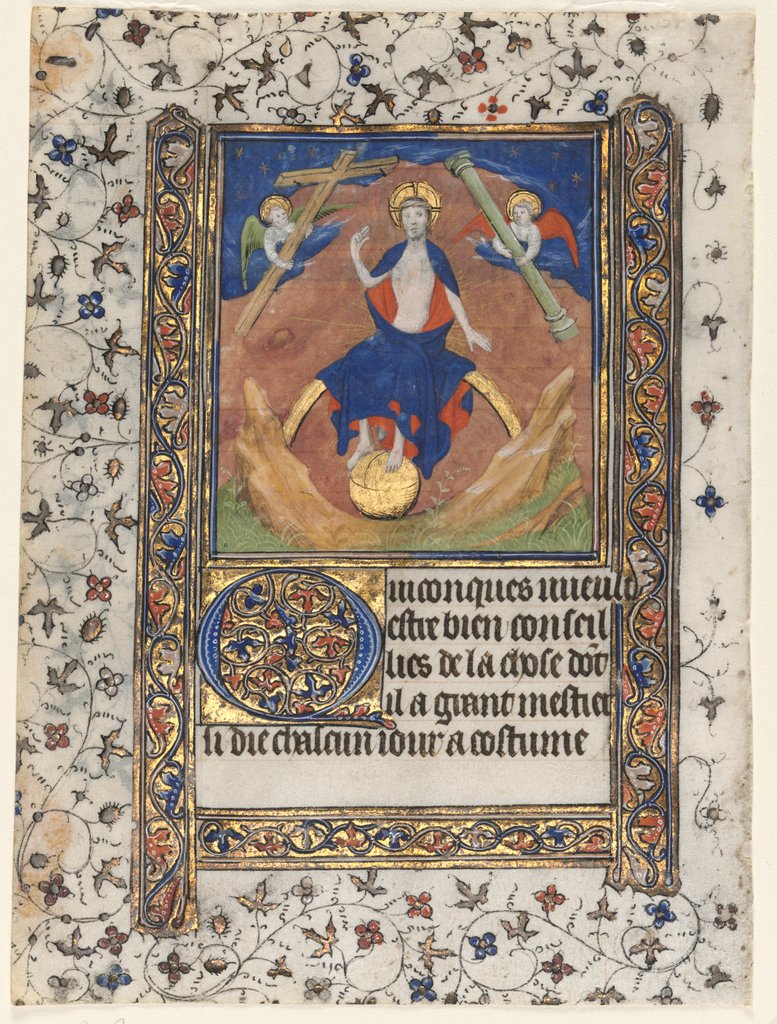 Quiconques vueult
estre bien conseil
lies de la chose dōt
il a grant mestier
si die chascun iour a costume